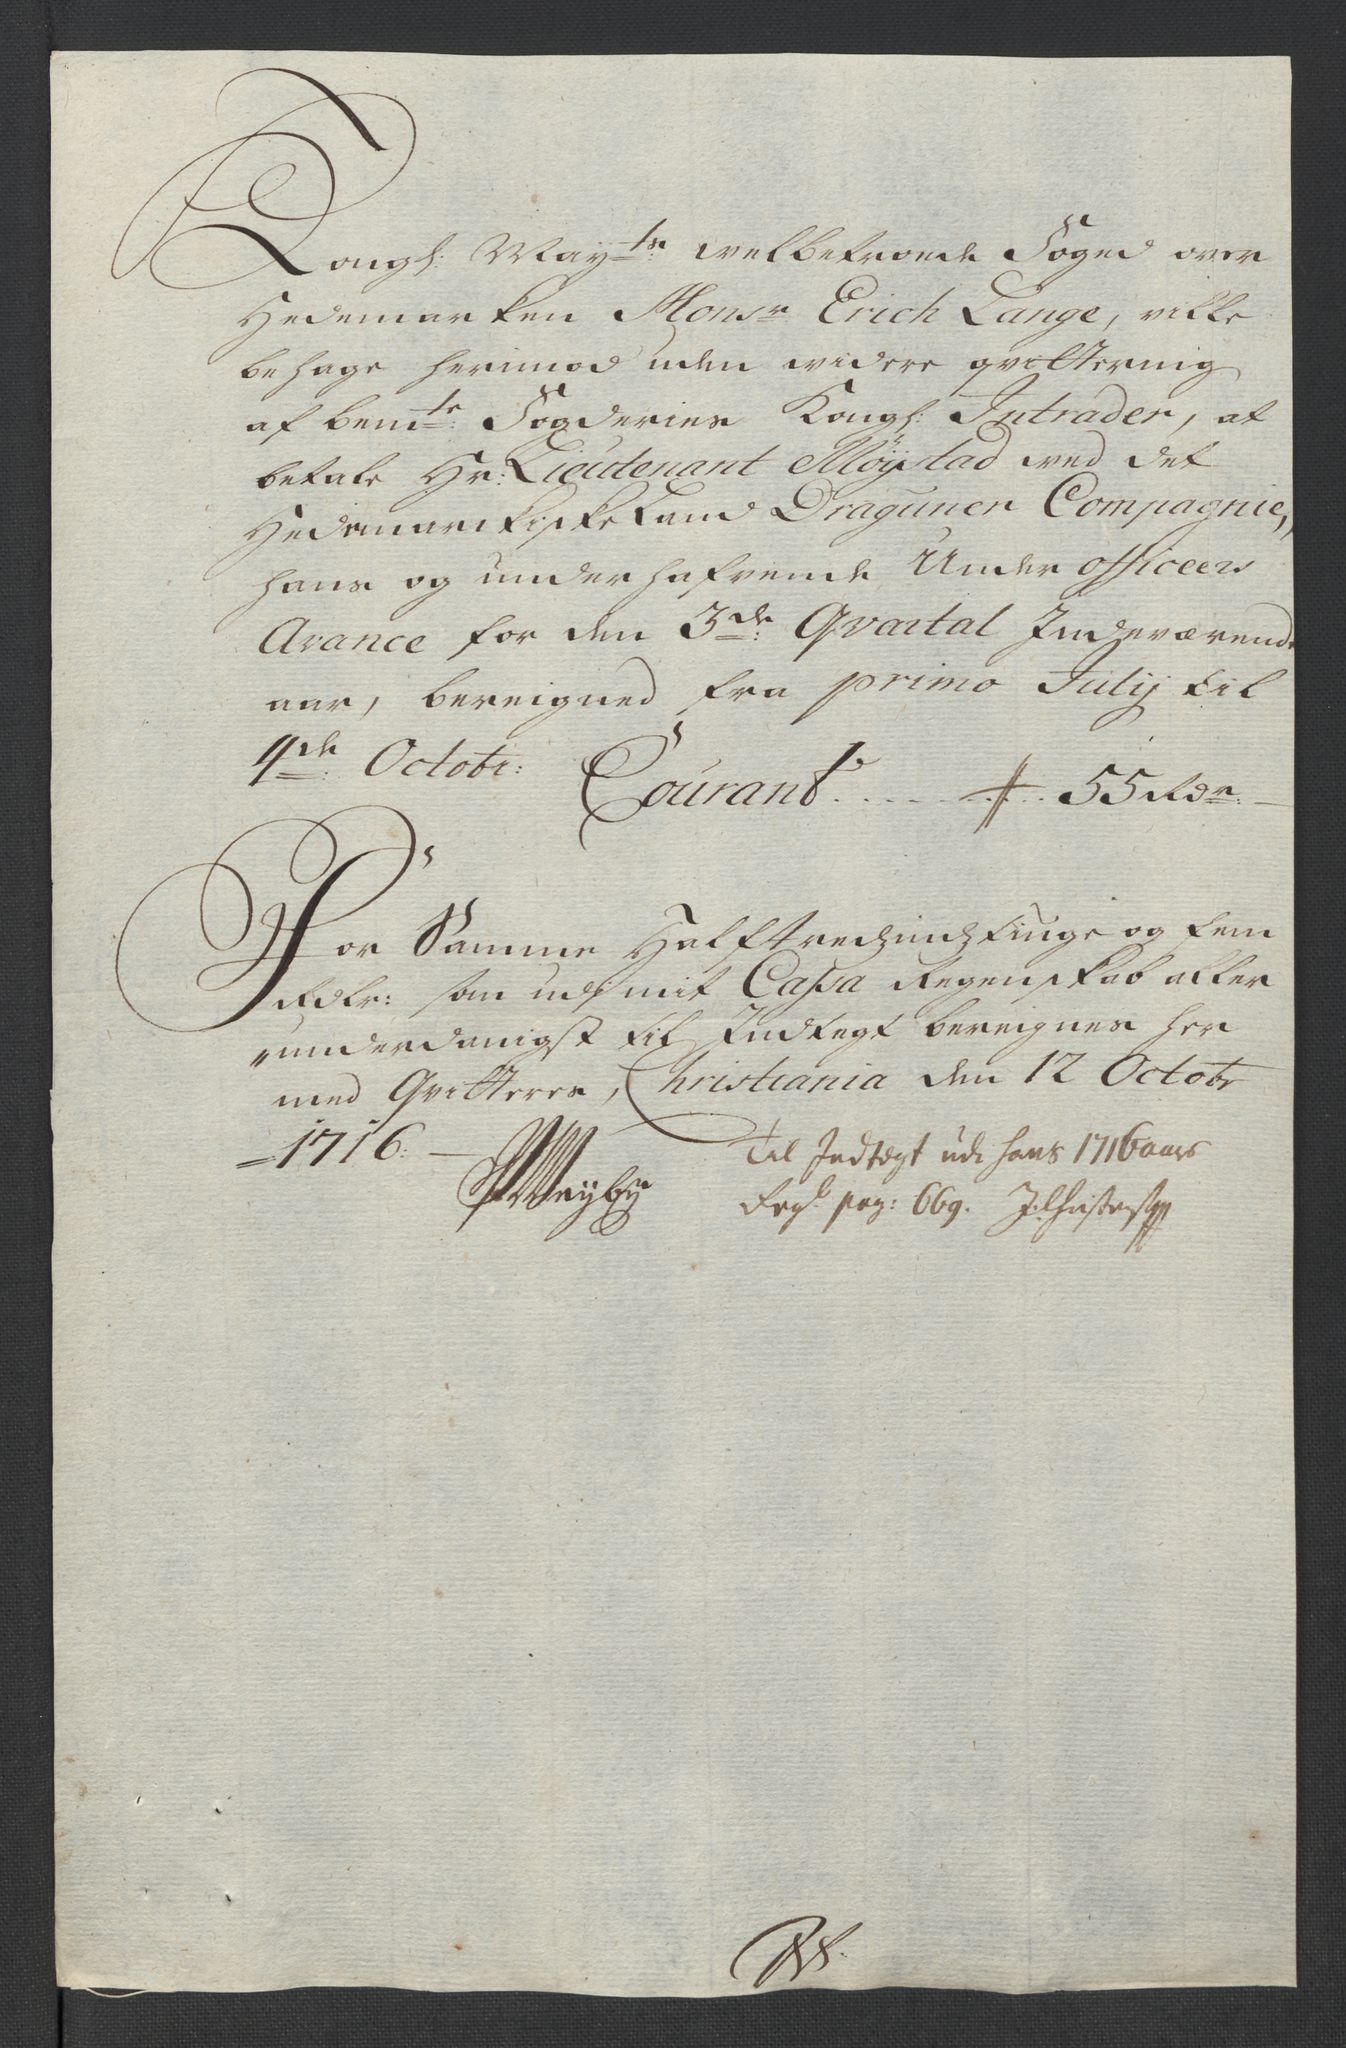 Kongl: May.ts welbetroede Foged over
Hedemarken Monsr Erich Lange, ville
behage herimod uden widere qvittering
af bemte: Fogderies Kongl: Intrader, at
betale Hr: Lieutenant Møystad wed det
Hedemarckiske Land Dragüner Compagnie,
hans og underhafvende Under officeers
Avance for den 3de: Qvartal Indeværende
aar, bereigned fra primo Julij til
4de: Octobr:
Courant ..... 55 Rdr:
For Samme Halftrediesindstiuge og fem
Rdlr: som udj mit Cassa Regenskab aller
underdanigst til Indtegt bereignes her
med Qvitteres, Christiania den 12 Octobr
1716.
Weyby
Til Indtægt udi hans 1716 aars
Regl pag: 669.